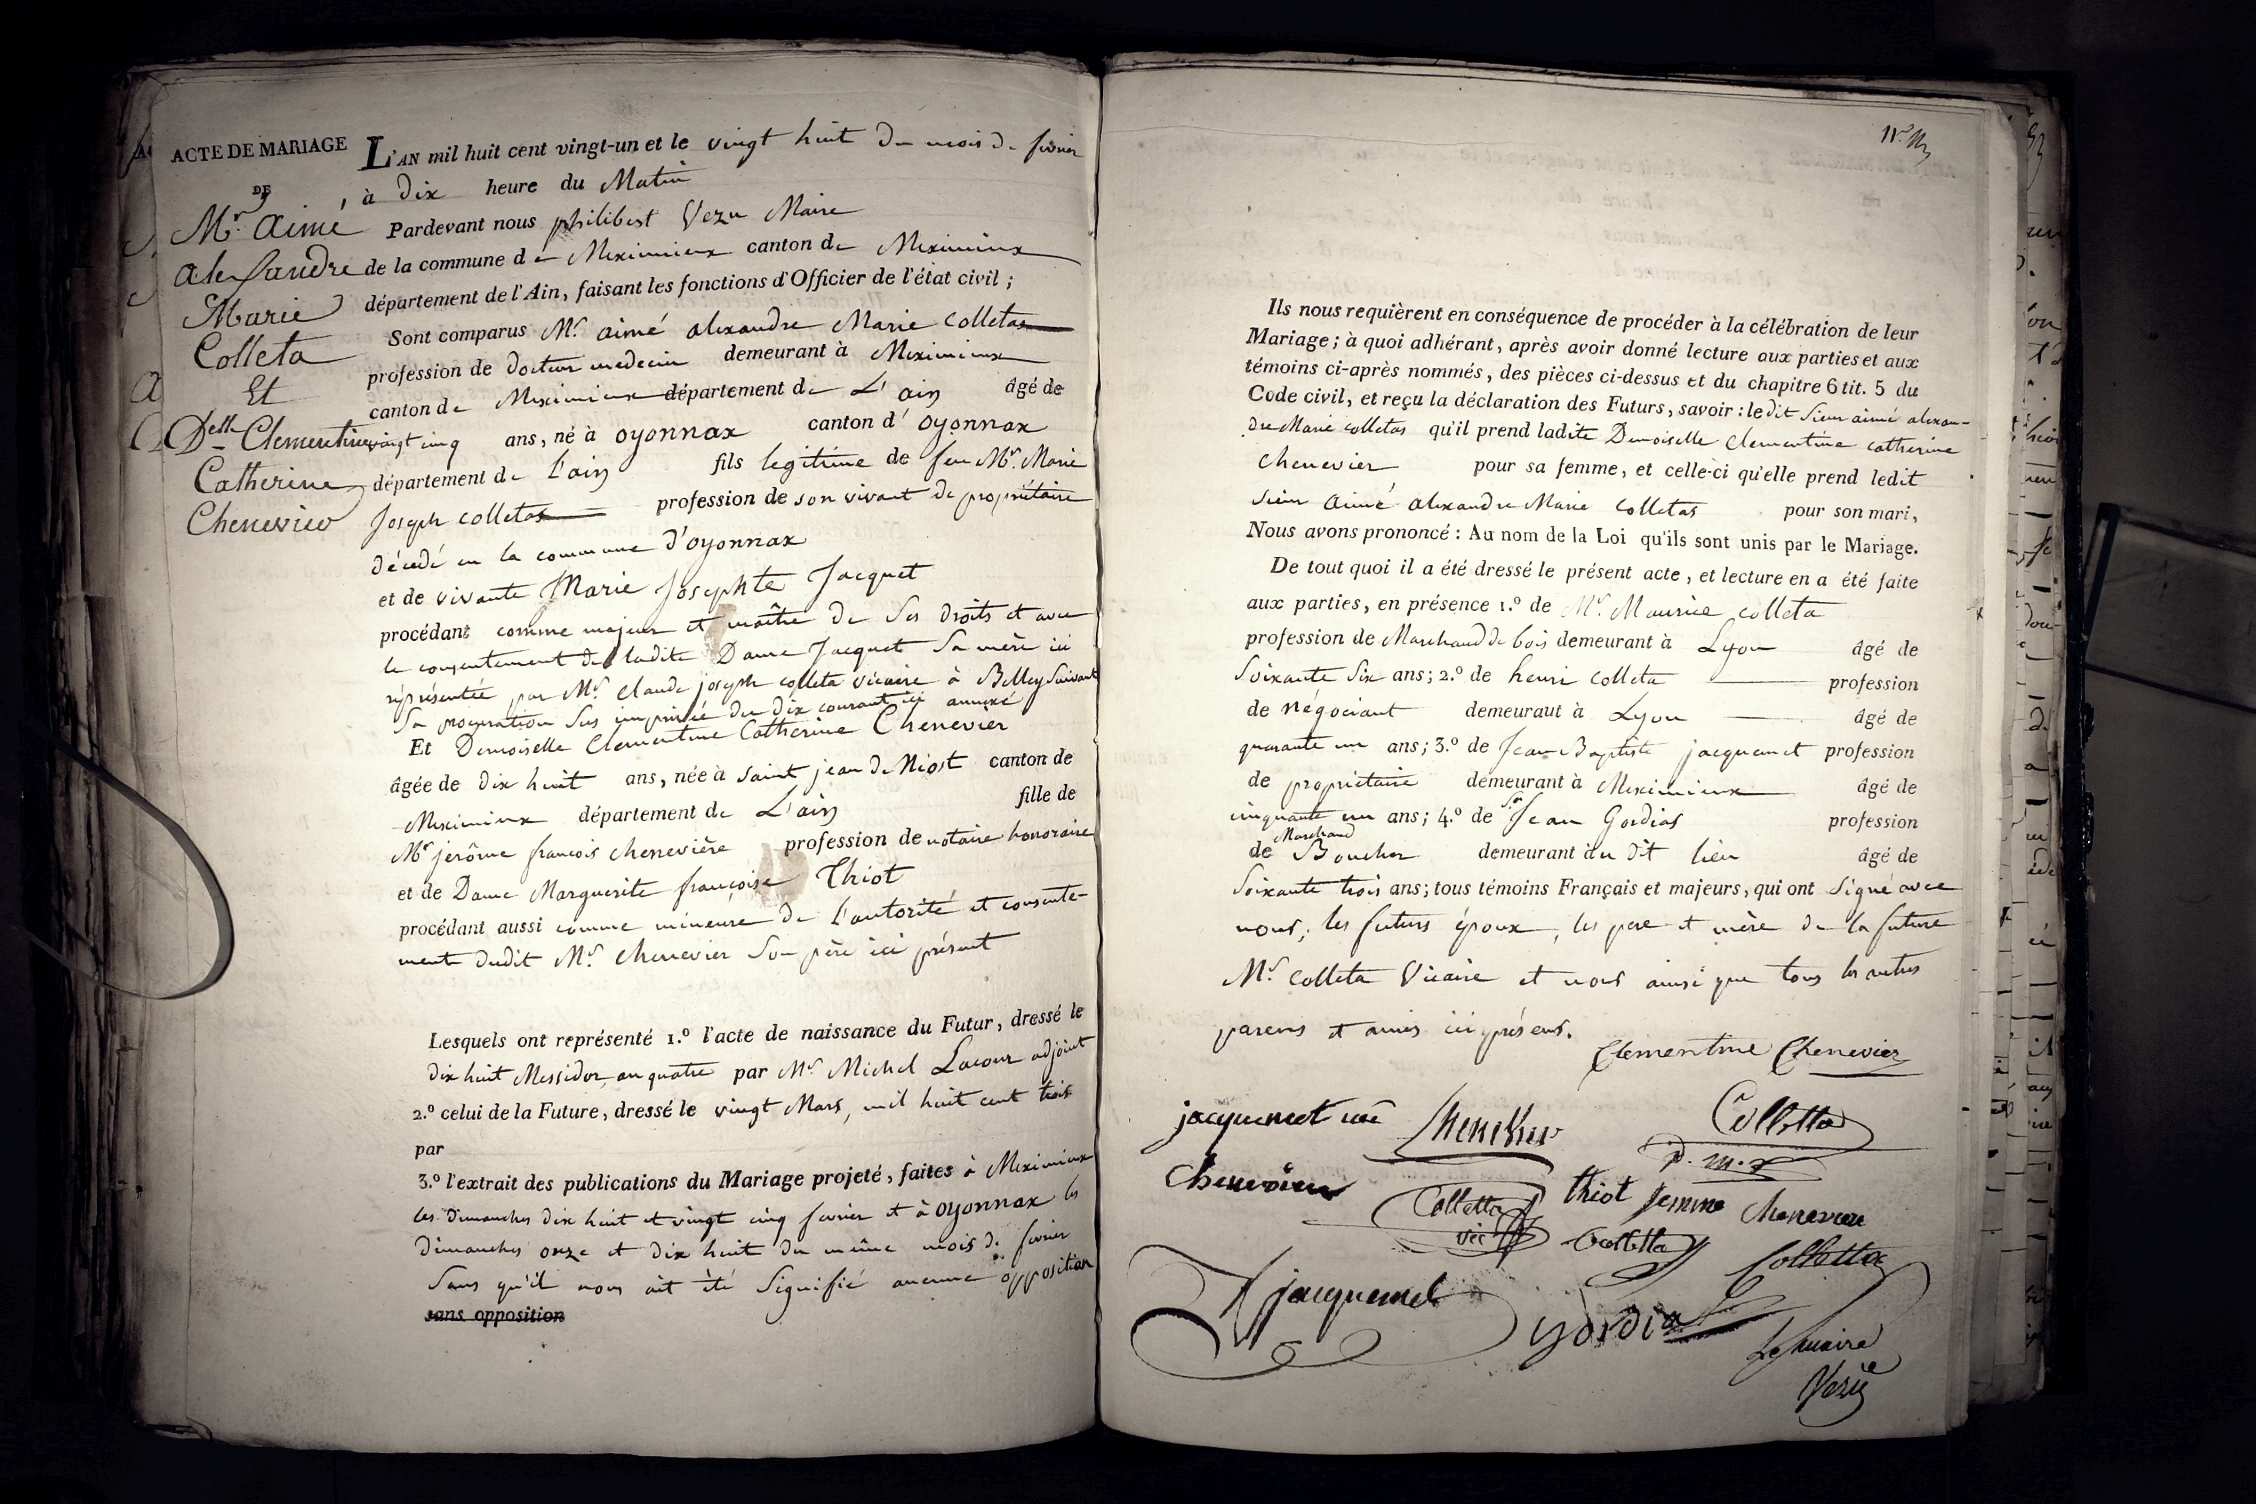 ACTE DE MARIAGE
DE
Mr. Aimé
alexandre
Marie
Colleta
Et
Delle Clementine
Catherine
Chenevier
L'AN mil huit cent vingt-un et le vingt huit du mois de fevrier
à dix heure du Matin
Pardevant nous philibert Vezu Maire
de la commune de Meximieux canton de Meximieux
département de l'Ain, faisant les fonctions d'Officier de l'état civil ;
Sont comparus Mr. aimé alexandre Marie Colletas
profession de docteur medecin demeurant à Meximieux
canton de Meximieux département de L'ain âgé de
vingt cinq ans, né à oyonnax canton d' oyonnax
département de L'ain fils legitime de feu Mr. Marie
Joseph colletas profession de son vivant de propriétaire
décédé en la commune d'oyonnax
et de vivante Marie Josephte Jacquet
procédant comme majeur et maître de ses droits et avec
le consentement de ladite Dame Jacquet sa mère ici
représentée par Mr. Claude joseph colleta vicaire à Belley suivant
sa procuration sus imprimée du dix courant ici annexé
Et Demoiselle Clementine Catherine Chenevier
âgée de dix huit ans, née à saint jean de Niost canton de
Meximieux département de L'ain fille de
Mr. jerôme françois chenevière profession de notaire honoraire
et de Dame Marguerite françoise Thiot
procédant aussi comme mineure de L'autorité et consente-
ment dudit Mr. chenevier son père ici présent
Lesquels ont représenté 1.º l'acte de naissance du Futur, dressé le
dix huit Messidor an quatre par Mr. Michel Lacour adjoint
2.º celui de la Future, dressé le vingt Mars, mil huit cent trois
par
3.º l'extrait des publications du Mariage projeté, faites à Meximieux
les dimanches dix huit et vingt cinq fevrier et à oyonnax les
dimanches onze et dix huit du même mois de fevrier
sans qu'il nous ait été signifié aucune opposition
sans opposition
Ils nous requièrent en conséquence de procéder à la célébration de leur
Mariage ; à quoi adhérant, après avoir donné lecture aux parties et aux
témoins ci-après nommés, des pièces ci-dessus et du chapitre 6 tit. 5 du
Code civil, et reçu la déclaration des Futurs, savoir : ledit sieur aimé alexan-
dre Marie colletas qu'il prend ladite Demoiselle Clementine catherine
chenevier pour sa femme, et celle-ci qu'elle prend ledit
sieur aimé alexandre Marie colletas pour son mari,
Nous avons prononcé : Au nom de la Loi qu'ils sont unis par le Mariage.
De tout quoi il a été dressé le présent acte, et lecture en a été faite
aux parties, en présence 1.º de Mr. Maurice colleta
profession de Marchand de bois demeurant à Lyon âgé de
soixante six ans ; 2.º de henri colleta profession
de négociant demeuraut à Lyon âgé de
quarante un ans ; 3.º de Jean Baptiste jacquemet profession
de propriétaire demeurant à Meximieux âgé de
cinquante un ans ; 4.º de Sr. Jean Gordias profession
Marchand
de Boucher demeurant au dit lieu âgé de
soixante trois ans ; tous témoins Français et majeurs, qui ont signé avec
nous, les futurs époux, les pere et mère de la future
Mr. colleta vicaire et nous ainsi que tous les autres
parens et amis ici présens.
Clementine Chenevier
jacquemet Chenevier Colletta
d. m. x
Chenevier Colletta thiot femme Cheneviere
vic Colletta Colletta
jacquemet gordias
Le maire
Vezu